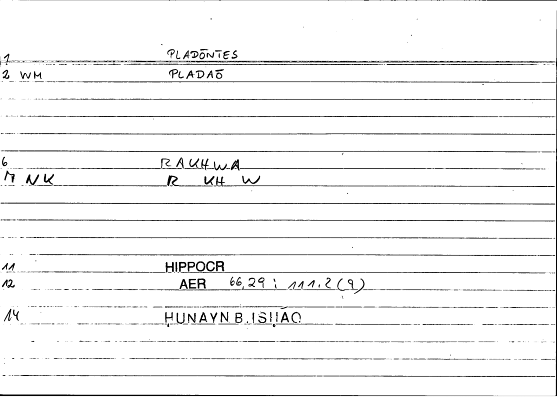 1 PLADŌNTES
2 WM PLADAŌ
6 RAKHWA
7 NK R KH W
11 HIPPOCR
12 AER 66,29 : 111.2 (9)
14 ḤUNAYN B. ISḤĀQ